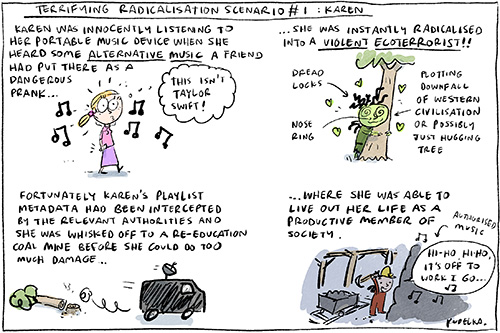 TERRIFYING RADICALISATION SCENARIO #1 : KAREN
KAREN WAS INNOCENTLY LISTENING TO
HER PORTABLE MUSIC DEVICE WHEN SHE
HEARD SOME ALTERNATIVE MUSIC A FRIEND
HAD PUT THERE AS A
DANGEROUS
PRANK...
THIS ISN'T
TAYLOR
SWIFT!
...SHE WAS INSTANTLY RADICALISED
INTO A VIOLENT ECOTERRORIST!!
DREAD
LOCKS
NOSE
RING
PLOTTING
DOWNFALL
OF WESTERN
CIVILISATION
OR POSSIBLY
JUST HUGGING
TREE
FORTUNATELY KAREN'S PLAYLIST
METADATA HAD BEEN INTERCEPTED
BY THE RELEVANT AUTHORITIES AND
SHE WAS WHISKED OFF TO A RE-EDUCATION
COAL MINE BEFORE SHE COULD DO TOO
MUCH DAMAGE...
...WHERE SHE WAS ABLE TO
LIVE OUT HER LIFE AS A
PRODUCTIVE MEMBER OF
SOCIETY.
AUTHORISED
MUSIC
HI-HO, HI-HO,
IT'S OFF TO
WORK I GO...
KUDELKA.